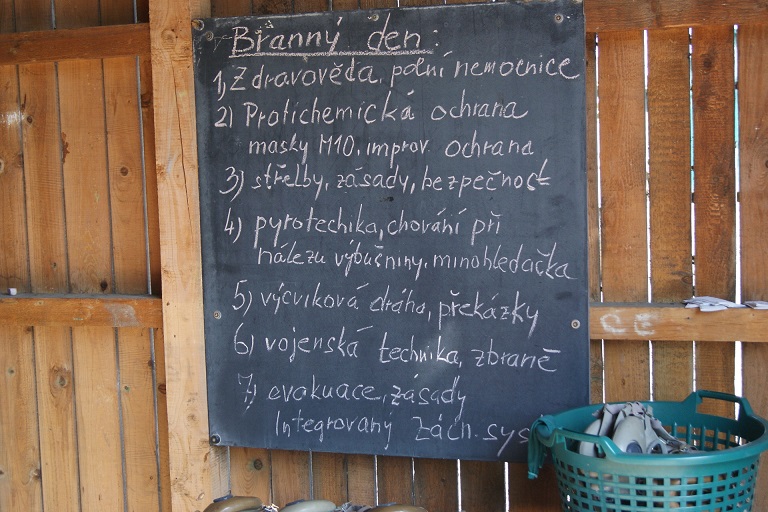 Branný den:
1, Zdravověda, polní nemocnice
2) Protichemická ochrana
masky M10, improv. ochrana
3) střelby, zásady, bezpečnost
4) pyrotechika, chování při
nálezu výbušniny, minohledačka
5) výcviková dráha, překázky
6) vojenská technika, zbraně
7) evakuace, zásady
Integrovaný zách. sys